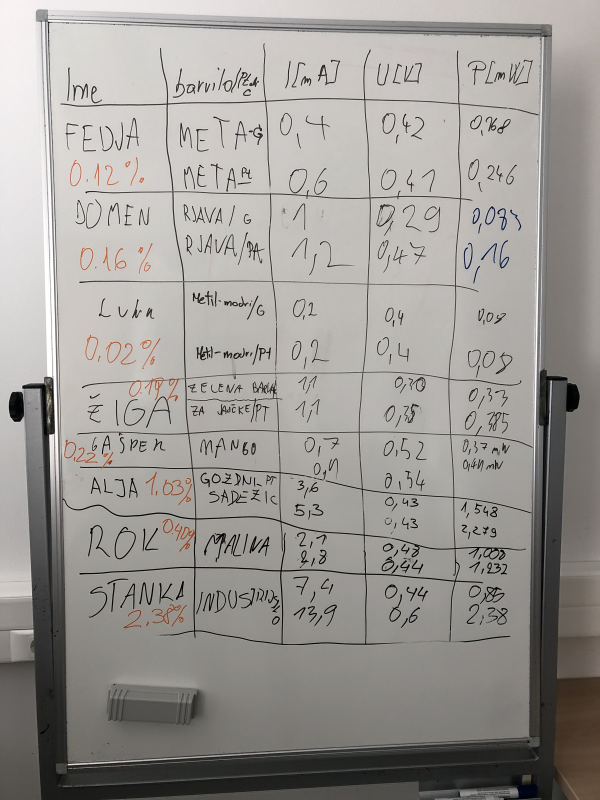 Ime barvilo/Pt ali C I[mA] U[V] P[mW]
FEDJA META-G 0,4 0,42 0,168
0.12% META Pt 0,6 0,41 0,246
DOMEN RJAVA/G 1 0,29
0.16% RJAVA/ 1,2 0,47 0,16
Luka Metil-modri/G 0,2 0,4 0,08
0,02% Metil-modri/Pt 0,2 0,4 0,08
0.19% ZELENA BARVA 1,1 0,30 0,33
ŽIGA ZA JAJČKE/PT 1,1 0,35 0,385
GAŠPER MANGO 0,7 0,52 0,37 mW
0,22% mW
ALJA 1.03% GOZDNI PT 3,6 0,43 1,548
SADEŽI C 5,3 0,43 2,279
ROK MALINA 2,1 0,48 1,008
2,8 0,44 1,232
STANKA 7,4 0,44 0,85
2.38% 13,9 0,6 2,38